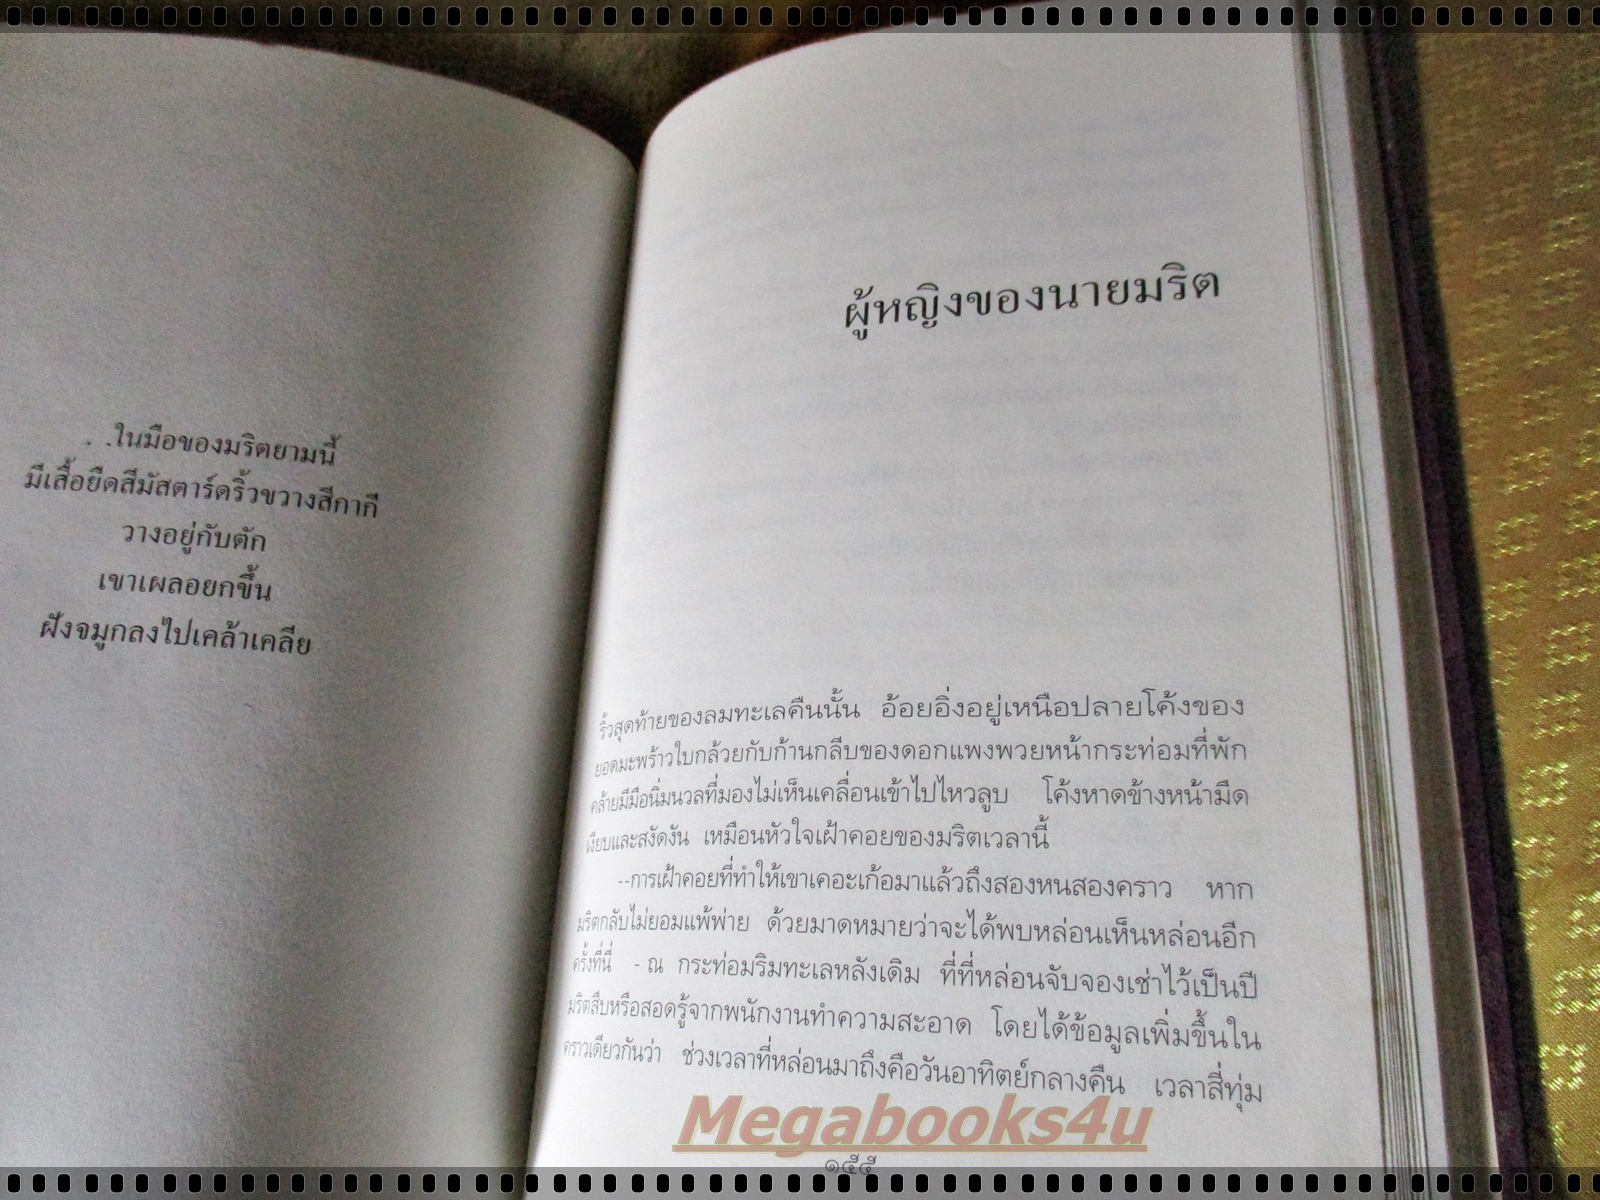 . .ในมือของมริตยามนี้
มีเสื้อยืดสีมัสตาร์ดริ้วขวางสีกากี
วางอยู่กับตัก
เขาเผลอยกขึ้น
ฝังจมูกลงไปเคล้าเคลีย
ผู้หญิงของนายมริต
ริ้วสุดท้ายของลมทะเลคืนนั้น อ้อยอิ่งอยู่เหนือปลายโค้งของ
ยอดมะพร้าวใบกล้วยกับก้านกลีบของดอกแพงพวยหน้ากระท่อมที่พัก
คล้ายมีมือนิ่มนวลที่มองไม่เห็นเคลื่อนเข้าไปไหวลูบ โค้งหาดข้างหน้ามืด
เงียบและสงัดงัน เหมือนหัวใจเฝ้าคอยของมริตเวลานี้
--การเฝ้าคอยที่ทำให้เขาเคอะเก้อมาแล้วถึงสองหนสองคราว หาก
มริตกลับไม่ยอมแพ้พ่าย ด้วยมาดหมายว่าจะได้พบหล่อนเห็นหล่อนอีก
ครั้งที่นี่ - ณ กระท่อมริมทะเลหลังเดิม ที่ที่หล่อนจับจองเช่าไว้เป็นปี
มริตสืบหรือสอดรู้จากพนักงานทำความสะอาด โดยได้ข้อมูลเพิ่มขึ้นใน
คราวเดียวกันว่า ช่วงเวลาที่หล่อนมาถึงคือวันอาทิตย์กลางคืน เวลาสี่ทุ่ม
Megabooks4u
๑๕๕